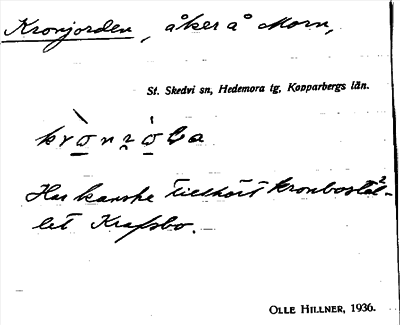 Kronjorden, åker å Morn,
St. Skedvi sn, Hedemora tg, Kopparbergs län.
Har kanske tillhört kronbostäl-
let Krafsbo.
OLLE HILLNER, 1936.